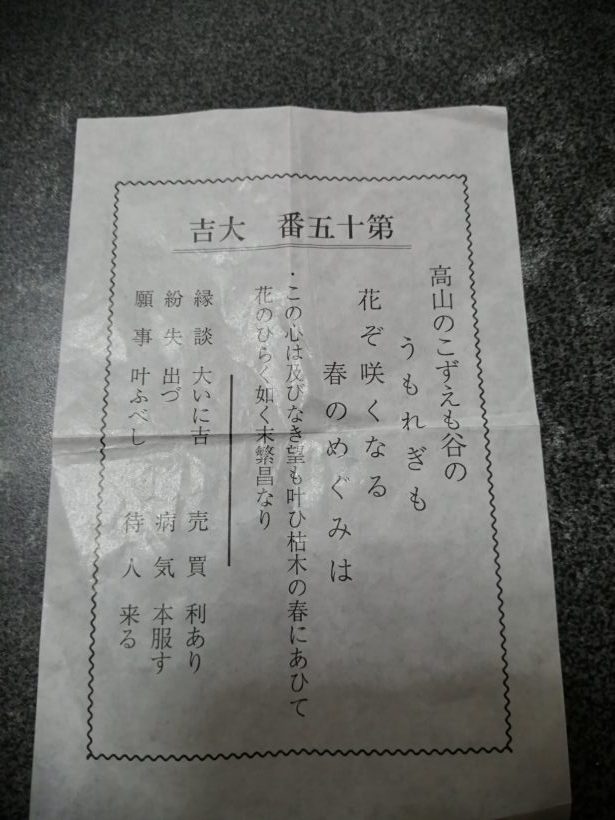 第十五番　大吉
高山のこずえも谷の
うもれぎも
花ぞ咲くなる
春のめぐみは
・この心は及びなき望も叶ひ枯木の春にあひて
花のひらく如く末繁昌なり
縁談　大いに吉
紛失　出づ
願事　叶ふべし
売買　利あり
病気　本服す
待人　来る